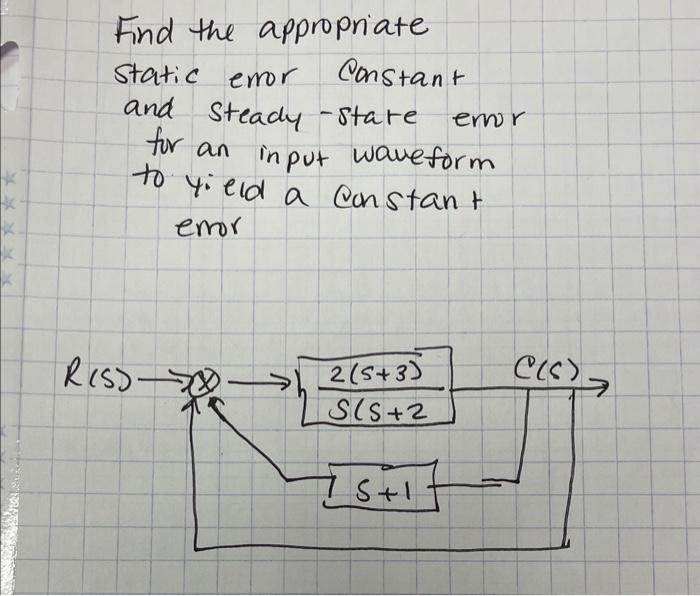 Find the appropriate
static error Constant
and steady-state error
for an input waveform
to yield a Constant
error
R(S)
2(S+3)
S(S+2
C(S)
S+1